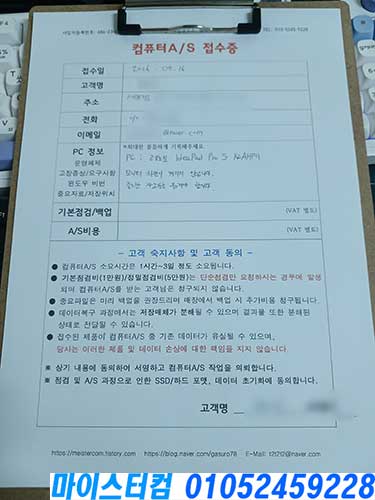 사업자등록번호: 686-23
TEL : 010-5245-9228
컴퓨터A/S 접수증
접수일
고객명
주소
전화
이메일
@naver.com
PC 정보
운영체제
고장증상/요구사항
윈도우 비번
중요자료/저장위치
*최대한 꼼꼼하게 기록해주세요
PC : 레노버 IdeaPad Pro 5
기본점검/백업
(VAT 별도)
A/S비용
(VAT 별도)
- 고객 숙지사항 및 고객 동의 -
● 컴퓨터A/S 소요시간은 1시간~3일 정도 소요됩니다.
● 기본점검비(1만원)/정밀점검비(5만원)는 단순점검만 요청하시는 경우에 발생
되며 컴퓨터A/S를 받는 고객님은 청구되지 않습니다.
● 중요파일은 미리 백업을 권장드리며 매장에서 백업 시 추가비용 청구됩니다.
● 데이터복구 과정에서는 저장매체가 분해될 수 있으며 결과물 또한 분해된
상태로 전달될 수 있습니다.
● 접수된 제품이 컴퓨터A/S 중 기존 데이터가 유실될 수 있으며,
당사는 이러한 제품 및 데이터 손상에 대한 책임을 지지 않습니다.
※ 상기 내용에 동의하여 서명하고 컴퓨터A/S 작업을 의뢰합니다.
※ 점검 및 A/S 과정으로 인한 SSD/하드 포맷, 데이터 초기화에 동의합니다.
고객명
https://meistercom.tistory.com https://blog.naver.com/gasuro78 E-Mail: t2t2t2@naver.com
마이스터컴 01052459228